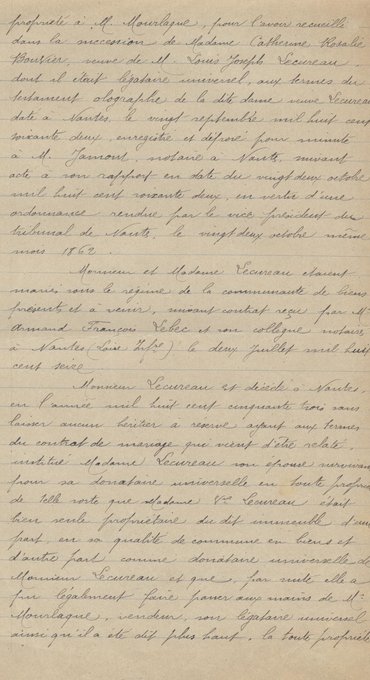 propriété à M. Mourlaque, pour l'avoir recueillie
dans la succession de Madame Catherine Rosalie
Bouvier, veuve de M. Louis Joseph Lecureau.
dont il était légataire universel, aux termes du
testament olographe de la dite dame veuve Lecureau
daté à Nantes, le vingt septembre mil huit cent
soixante deux, enregistré et déposé pour minute
à M. Jamont, notaire à Nantes, suivant
acte à son rapport en date du vingt deux octobre
mil huit cent soixante deux, en vertu d'une
ordonnance rendue par le vice président du
tribunal de Nantes, le vingt deux octobre même
mois 1862.
Monsieur et Madame Lecureau étaient
mariés sous le régime de la communauté de biens
présents et à venir, suivant contrat reçu par Me
Armand François Lebec et son collègue notaires
à Nantes (Loire Infre) le deux juillet mil huit
cent seize
Monsieur Lecureau est décédé à Nantes,
en l'année mil huit cent cinquante trois sans
laisser aucun héritier à réserve ayant aux termes
du contrat de mariage qui vient d'être relaté.
institué Madame Lecureau son épouse survivante
pour sa donataire universelle en toute propriété
de telle sorte que Madame Vve Lecureau était
bien seule propriétaire du dit immeuble d'une
part, en sa qualité de commune en biens et
d'autre part comme donataire universelle de
Monsieur Lecureau et que, par suite elle a
pu légalement faire passer aux mains de Mr
Mourlaque, vendeur, son légataire universel
ainsi qu'il a été dit plus haut, la toute propriété